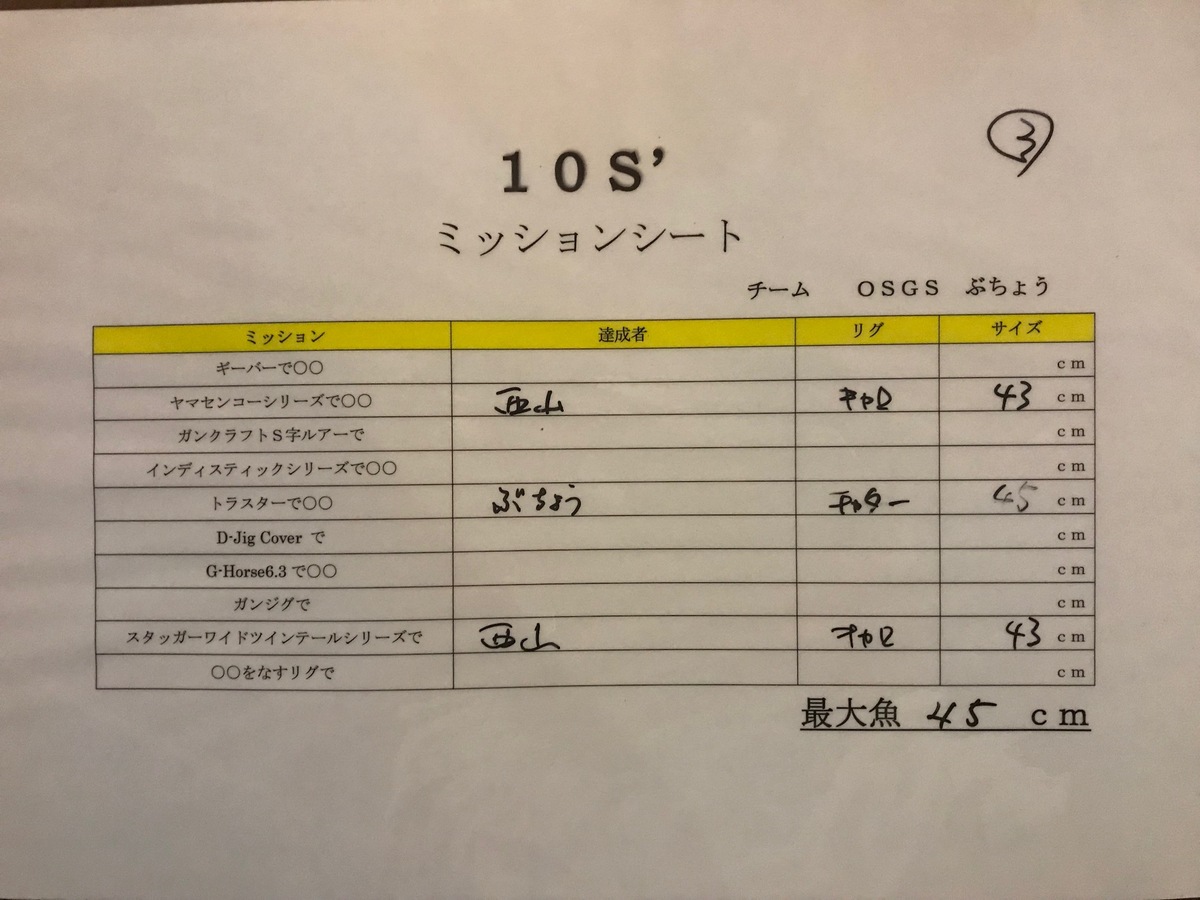 ③
10S’
ミッションシート
チーム OSGS ぶちょう
ミッション 達成者 リグ サイズ
ギーバーで〇〇 cm
ヤマセンコーシリーズで〇〇 西山 キャロ 43 cm
ガンクラフトS字ルアーで cm
インディスティックシリーズで〇〇 cm
トラスターで〇〇 ぶちょう チャター 45 cm
D-Jig Cover で cm
G-Horse6.3で〇〇 cm
ガンジグで cm
スタッガーワイドツインテールシリーズで 西山 キャロ 43 cm
〇〇をなすリグで cm
最大魚 45 cm